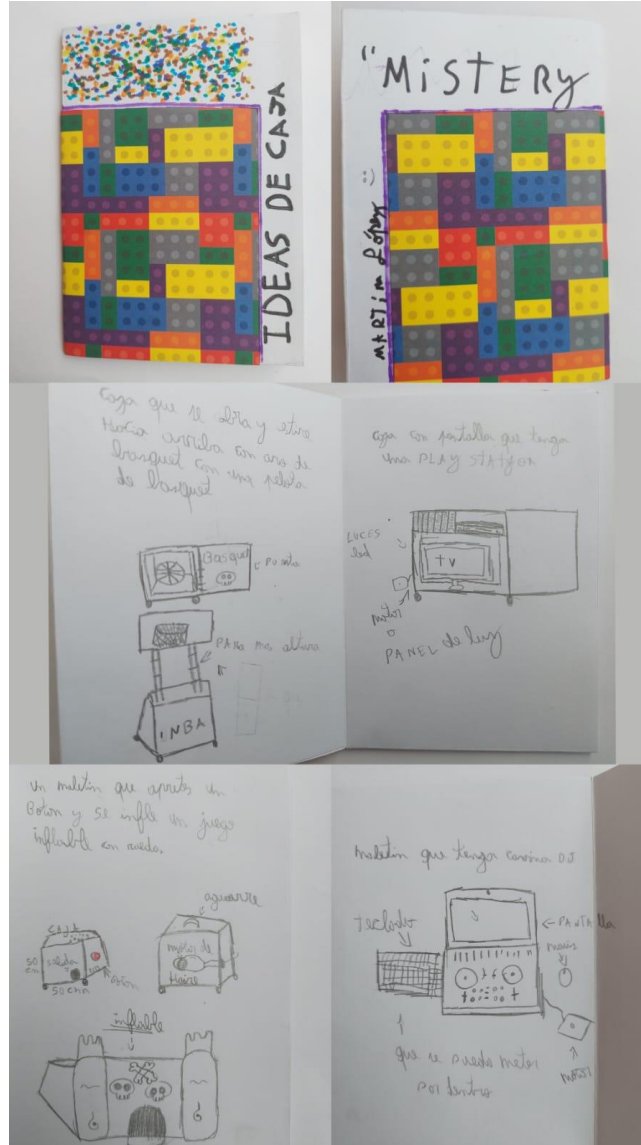 IDEAS DE CAJA
"MiSTERY
MARTíN López :)
caja que se abra y estire
Hacia arriba con aro de
basquet con una pelota
de basquet
Basquet
Puerta
PARA mas altura
NBA
caja con pantalla que tenga
una PLAY STATYON
LUCES
led
TV
motor
o
PANEL de luz
un maletin que apretes un
Boton y se infle un juego
inflable con ruedas
CAJA
50
cm
salida
Boton
50 cm
aguarre
motor de
Haire
inflable
maletin que tenga consina DJ
teclado
PANtAlla
maus
motor
que se pueda meter
por dentro